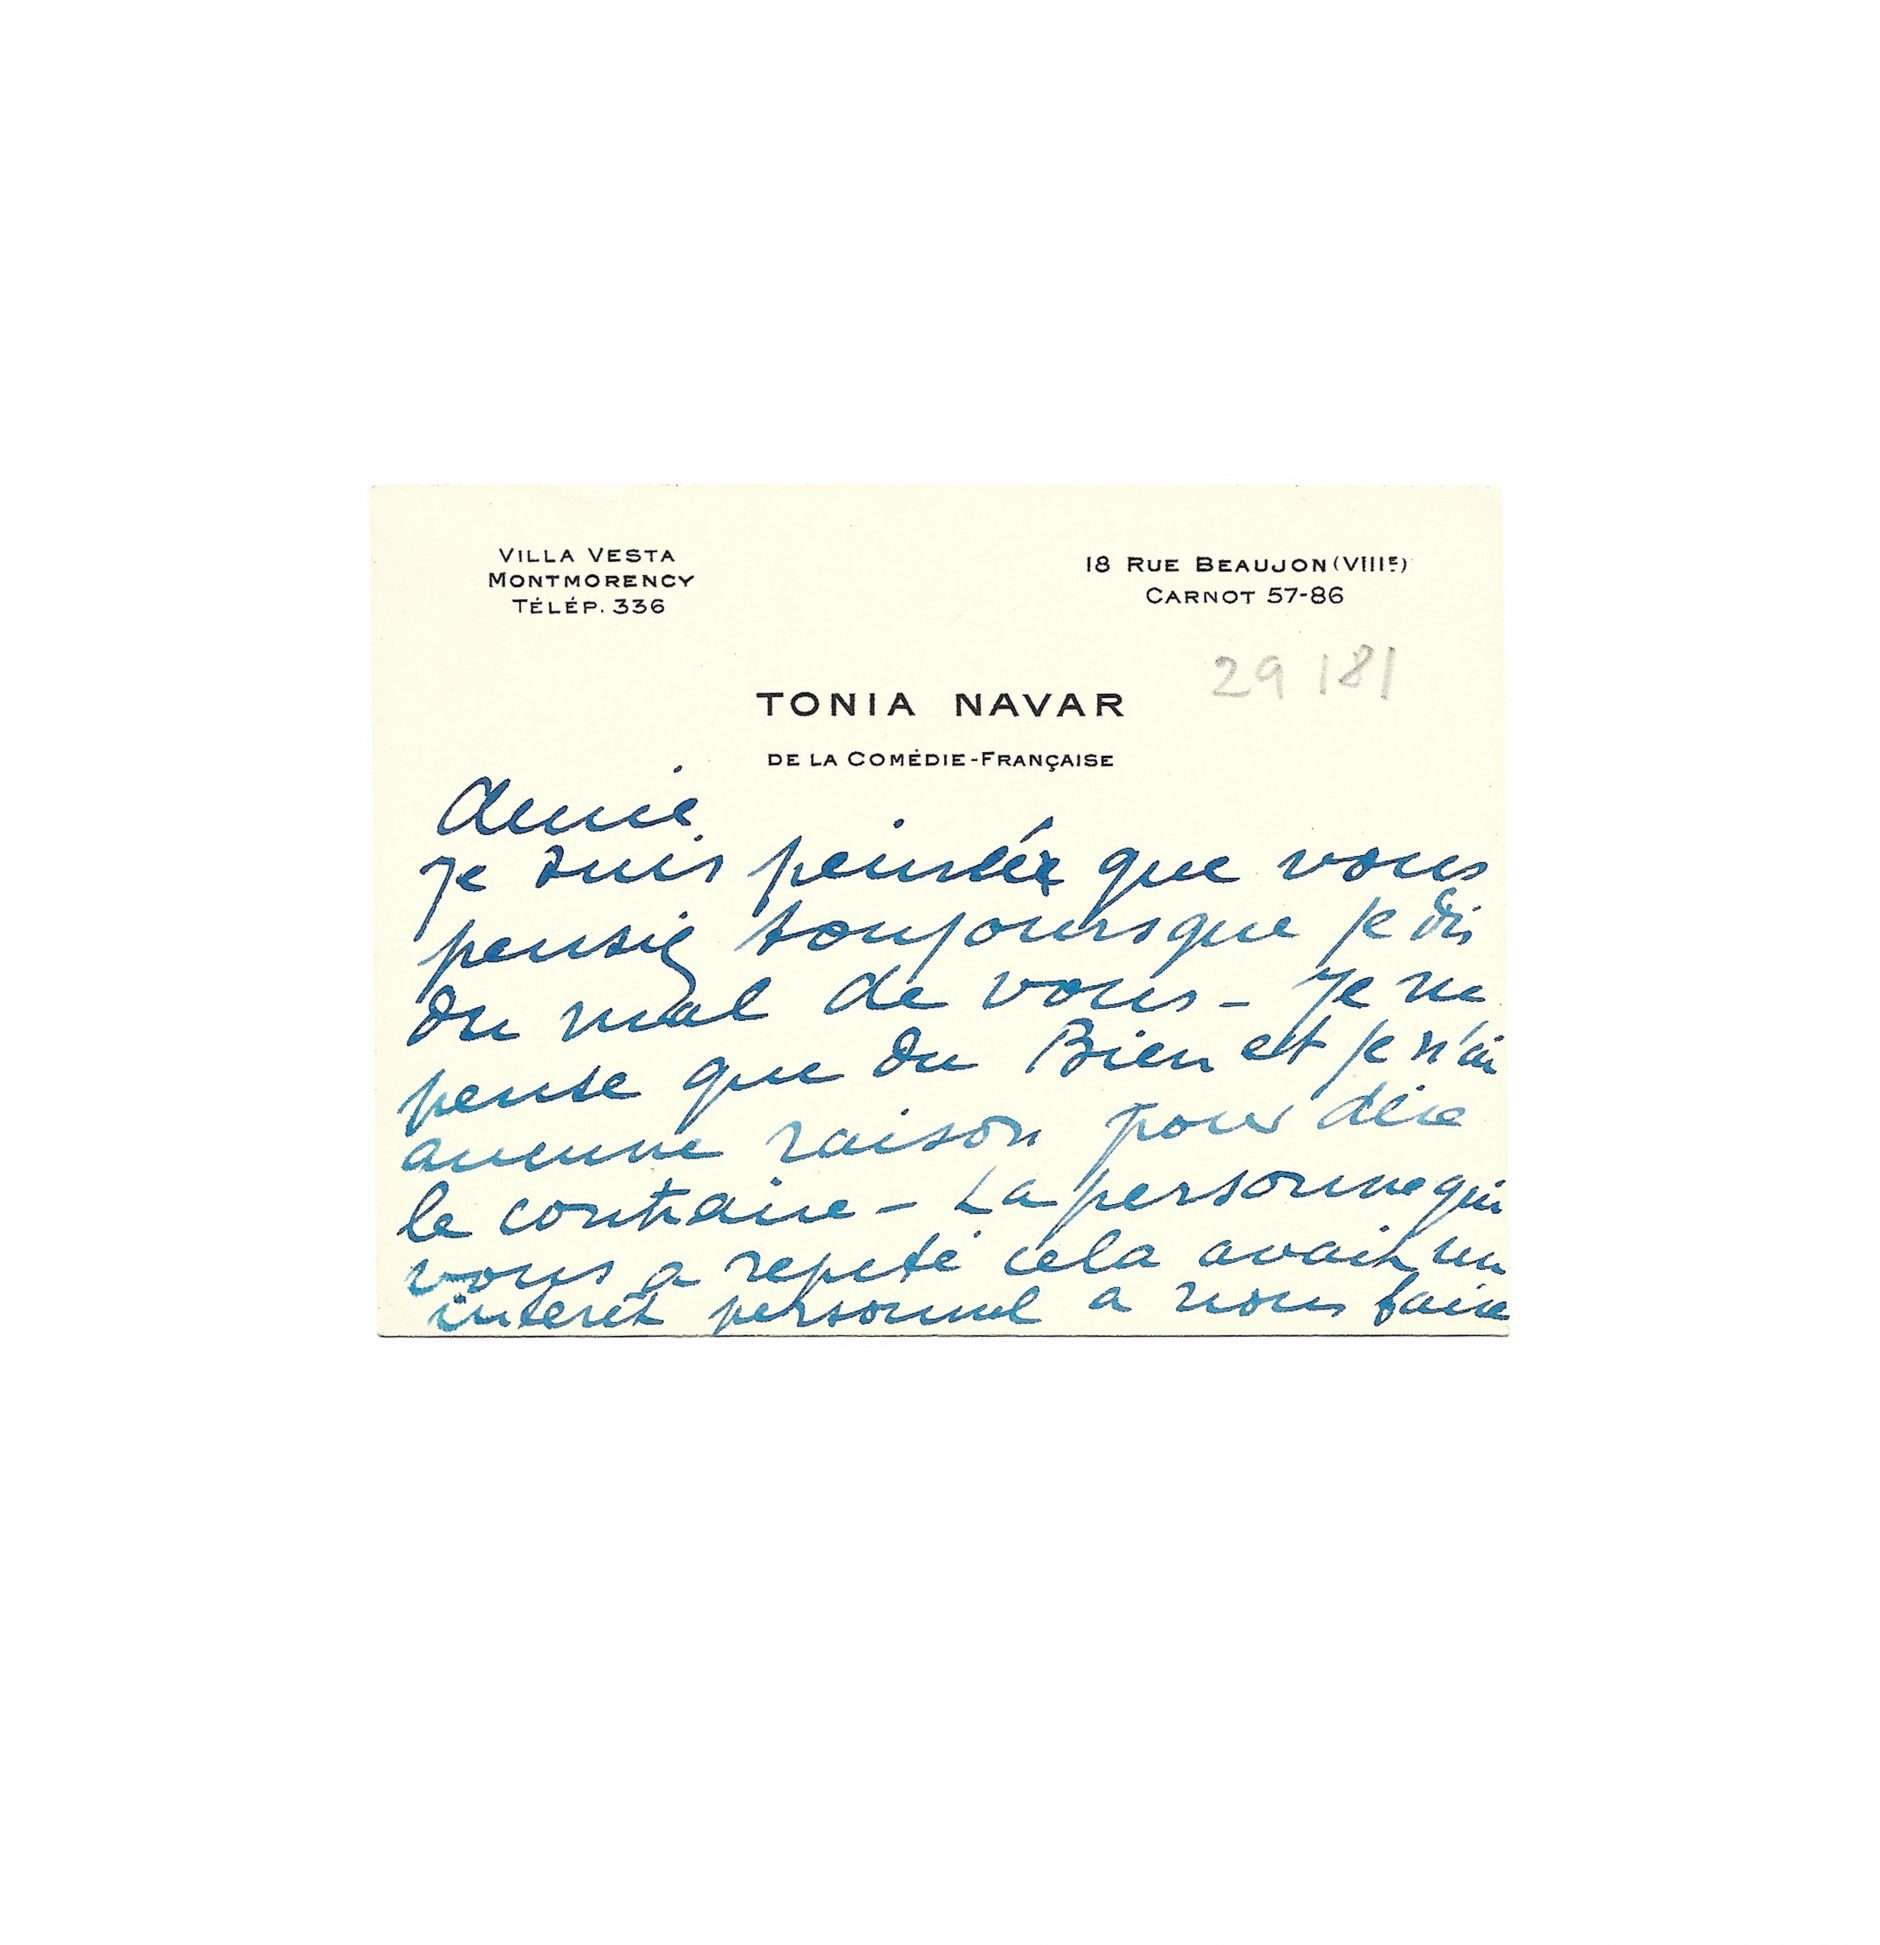 VILLA VESTA
MONTMORENCY
TÉLÉP. 336
18 RUE BEAUJON (VIIIE)
CARNOT 57-86
29 181
TONIA NAVAR
DE LA COMÉDIE-FRANÇAISE
Amie
Je suis peinée que vous
pensiez toujours que je dis
du mal de vous – Je ne
pense que du Bien et je n'ai
aucune raison pour dire
le contraire – La personne qui
vous a repeté cela avait un
interêt personnel a nous faire